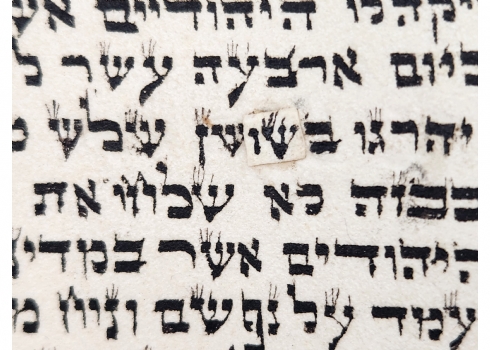 יקהלו היהודיים אש
ביום ארבעה עשר ל
יהרגו בשושן שלש מ
בבזה לא שלחו את
היהודים אשר במדינ
עמד על נפשם ונוח מ